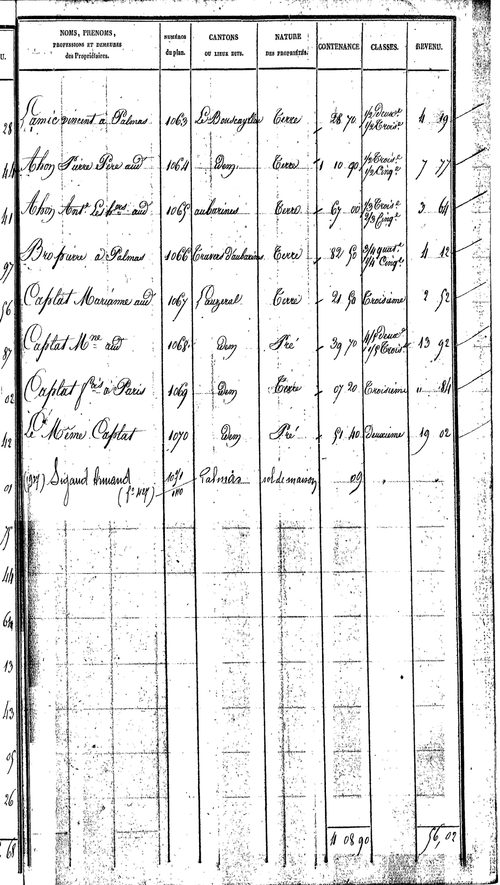 NOMS, PRENOMS, PROFESSIONS ET DEMEURES des Propriétaires. NUMÉROS du plan. CANTONS OU LIEUX DITS. NATURE DES PROPRIÉTÉS. CONTENANCE. CLASSES. REVENU.
Lamic vincent à Palmas 1063 Terre 28 70 1/2 Deux.e 1/2 Trois.e 4 19
Ahon Pierre Père aud 1064 idem Terre 1 10 90 1/2 Trois.e 1/2 Cinq.e 7 77
Ahon Ant.e Les h.ers aud 1065 aubarines Terre 67 00 1/3 Trois.e 2/3 Cinq.e 3 64
Bro pierre à Palmas 1066 Terre 82 50 3/4 quat.e 1/4 Cinq.e 4 12
Caplat Marianne aud 1067 Lauzeral Terre 21 50 Troisieme 2 52
Caplat M.ne aud 1068 idem Pré 39 70 4/5 deux.e 1/5 Trois.e 13 92
Caplat f.çois à Paris 1069 idem Terre 07 20 Troisieme " 84
Le Même Caplat 1070 idem Pré 51 40 Deuxieme 19 02
(1907) Sigaud Armand 1071 Palmas sol de maison 09 " "
(f.o 427) 1110
4 08 90 56,02